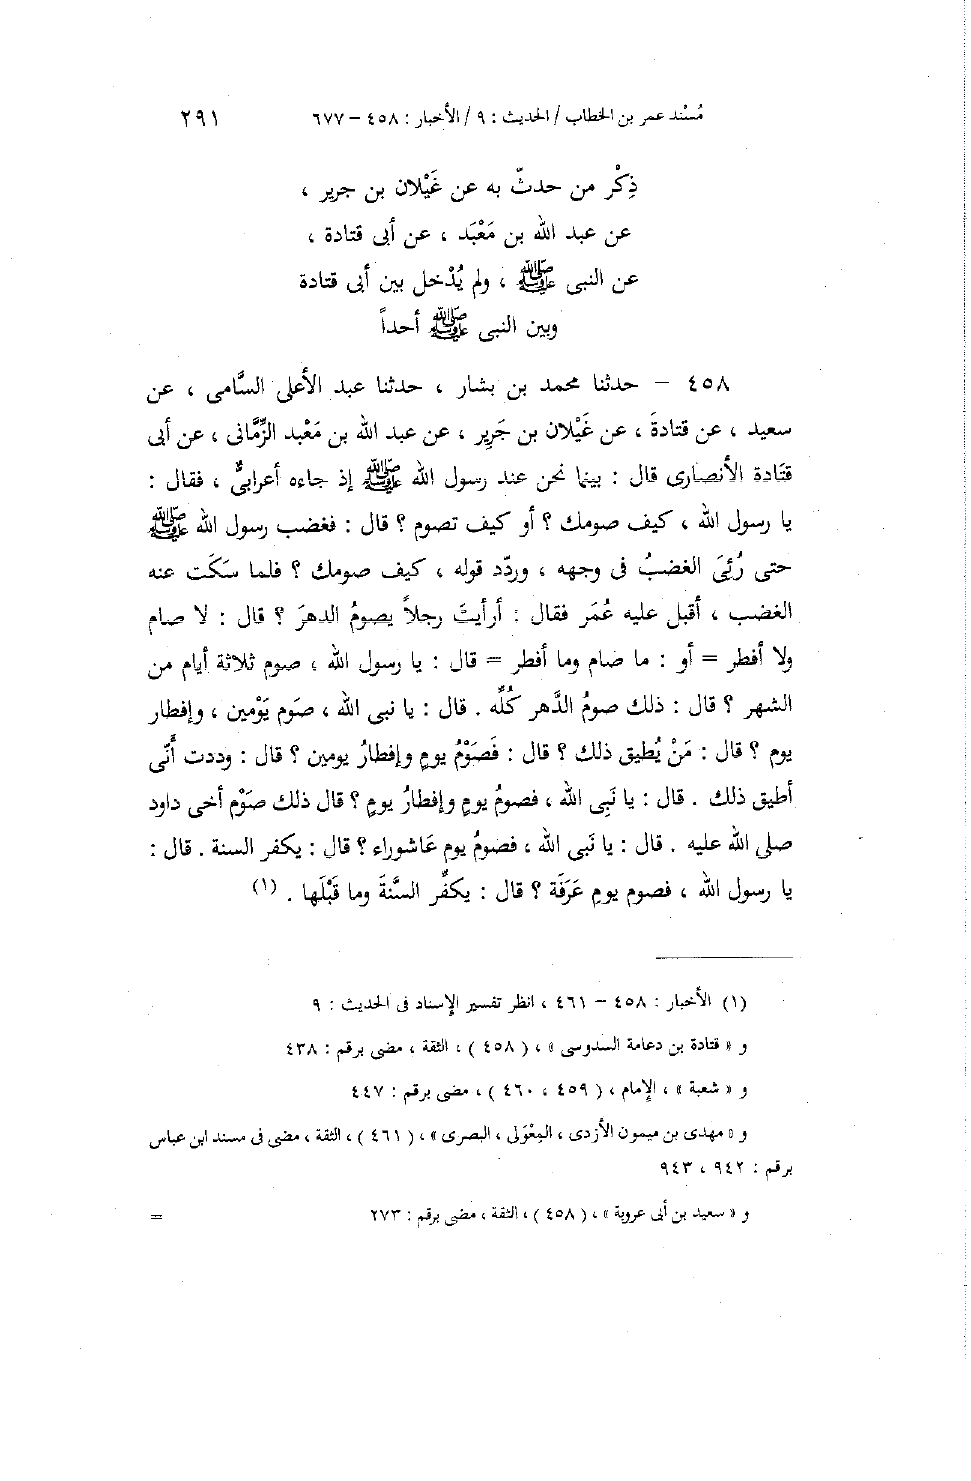 مُسْند عمر بن الخطاب / الحديث : ٩ / الأخبار : ٤٥٨ – ٦٧٧ ٢٩١
ذِكْر من حدثّ به عن غَيْلان بن جرير ،
عن عبد الله بن مَعْبَد ، عن أبى قتادة ،
عن النبى ﷺ ، ولم يُدْخل بين أبى قتادة
وبين النبى ﷺ أحداً
٤٥٨ – حدثنا محمد بن بشار ، حدثنا عبد الأعلى السَّامى ، عن
سعيد ، عن قتادةَ ، عن غَيْلان بن جَرِير ، عن عبد الله بن مَعْبد الزِّمَّانى ، عن أبى
قتَادة الأنصارى قال : بينما نحن عند رسول الله ﷺ إذ جاءه أعرابىٌّ ، فقال :
يا رسول الله ، كيف صومك ؟ أو كيف تصوم ؟ قال : فغضب رسول الله ﷺ
حتى رُئِىَ الغضبُ فى وجهه ، وردّد قوله ، كيف صومك ؟ فلما سَكَت عنه
الغضب ، أقبل عليه عُمَر فقال : أرأيتَ رجلاً يصومُ الدهرَ ؟ قال : لا صام
ولا أفطر = أو : ما صام وما أفطر = قال : يا رسول الله ، صوم ثلاثة أيام من
الشهر ؟ قال : ذلك صومُ الدَّهر كُلِّه . قال : يا نبى الله ، صَوم يَوْمين ، وإفطار
يوم ؟ قال : مَنْ يُطيق ذلك ؟ قال : فَصَوْمُ يومٍ وإفطارُ يومين ؟ قال : وددت أَنّى
أطيق ذلك . قال : يا نَبِى الله ، فصومُ يومٍ وإفطارُ يومٍ ؟ قال ذلك صوْم أخى داود
صلى الله عليه . قال : يا نَبى الله ، فصومُ يوم عَاشوراء ؟ قال : يكفر السنة . قال :
يا رسول الله ، فصوم يومِ عَرَفَة ؟ قال : يكفِّر السَّنةَ وما قَبْلَها . (١)
(١) الأخبار : ٤٥٨ – ٤٦١ ، انظر تفسير الإسناد فى الحديث : ٩
و « قتادة بن دعامة السدوسى » ، ( ٤٥٨ ) ، الثقة ، مضى برقم : ٤٣٨
و « شعبة » ، الإمام ، ( ٤٥٩ ، ٤٦٠ ) ، مضى برقم : ٤٤٧
و « مهدى بن ميمون الأزدى ، المِعْوَلى ، البصرى » ، ( ٤٦١ ) ، الثقة ، مضى فى مسند ابن عباس
برقم : ٩٤٢ ، ٩٤٣
و « سعيد بن أبى عروبة » ، ( ٤٥٨ ) ، الثقة ، مضى برقم : ٢٧٣ =